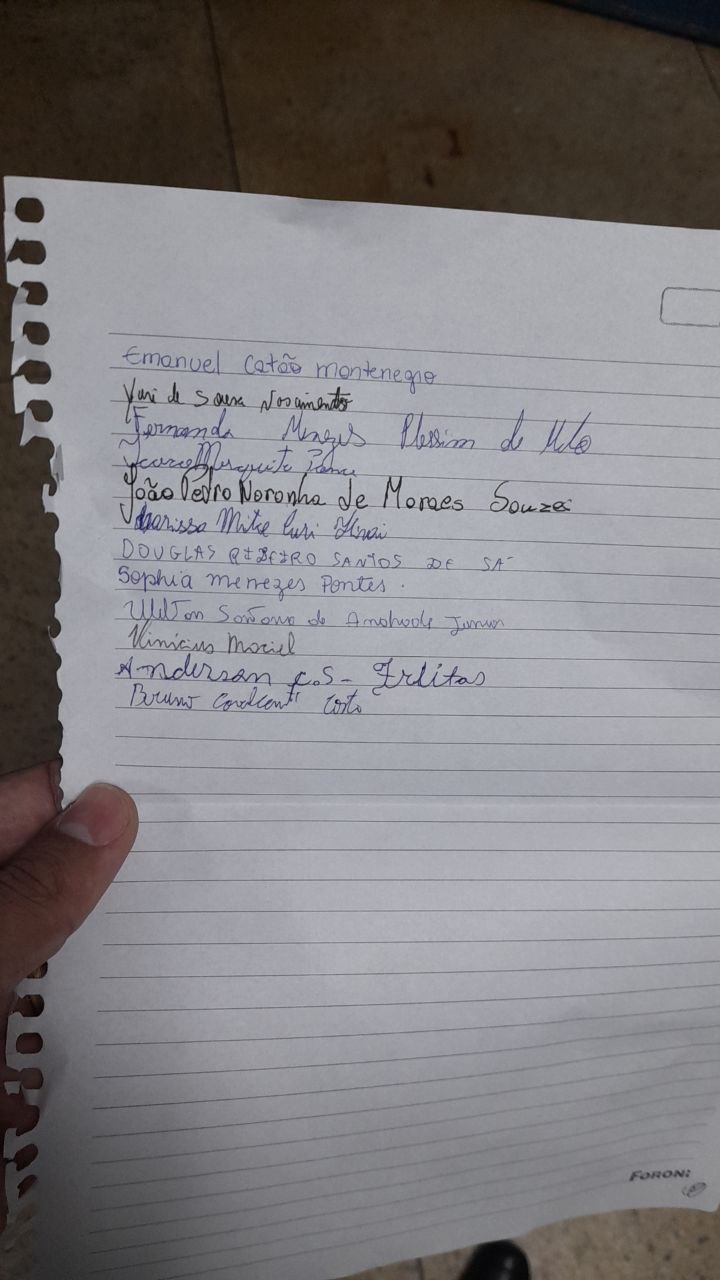 Emanuel Catão montenegro
Yuri de Souza Nascimento
Fernanda Menezes de Melo
Mesquita
João Pedro Noronha de Moraes Souza
DOUGLAS RIBEIRO SANTOS DE SÁ
Sophia menezes Pontes.
Santana de Andrade Junior
Vinicius Maciel
Anderson C.S- Freitas
Bruno Cavalcanti Costa
FORONI